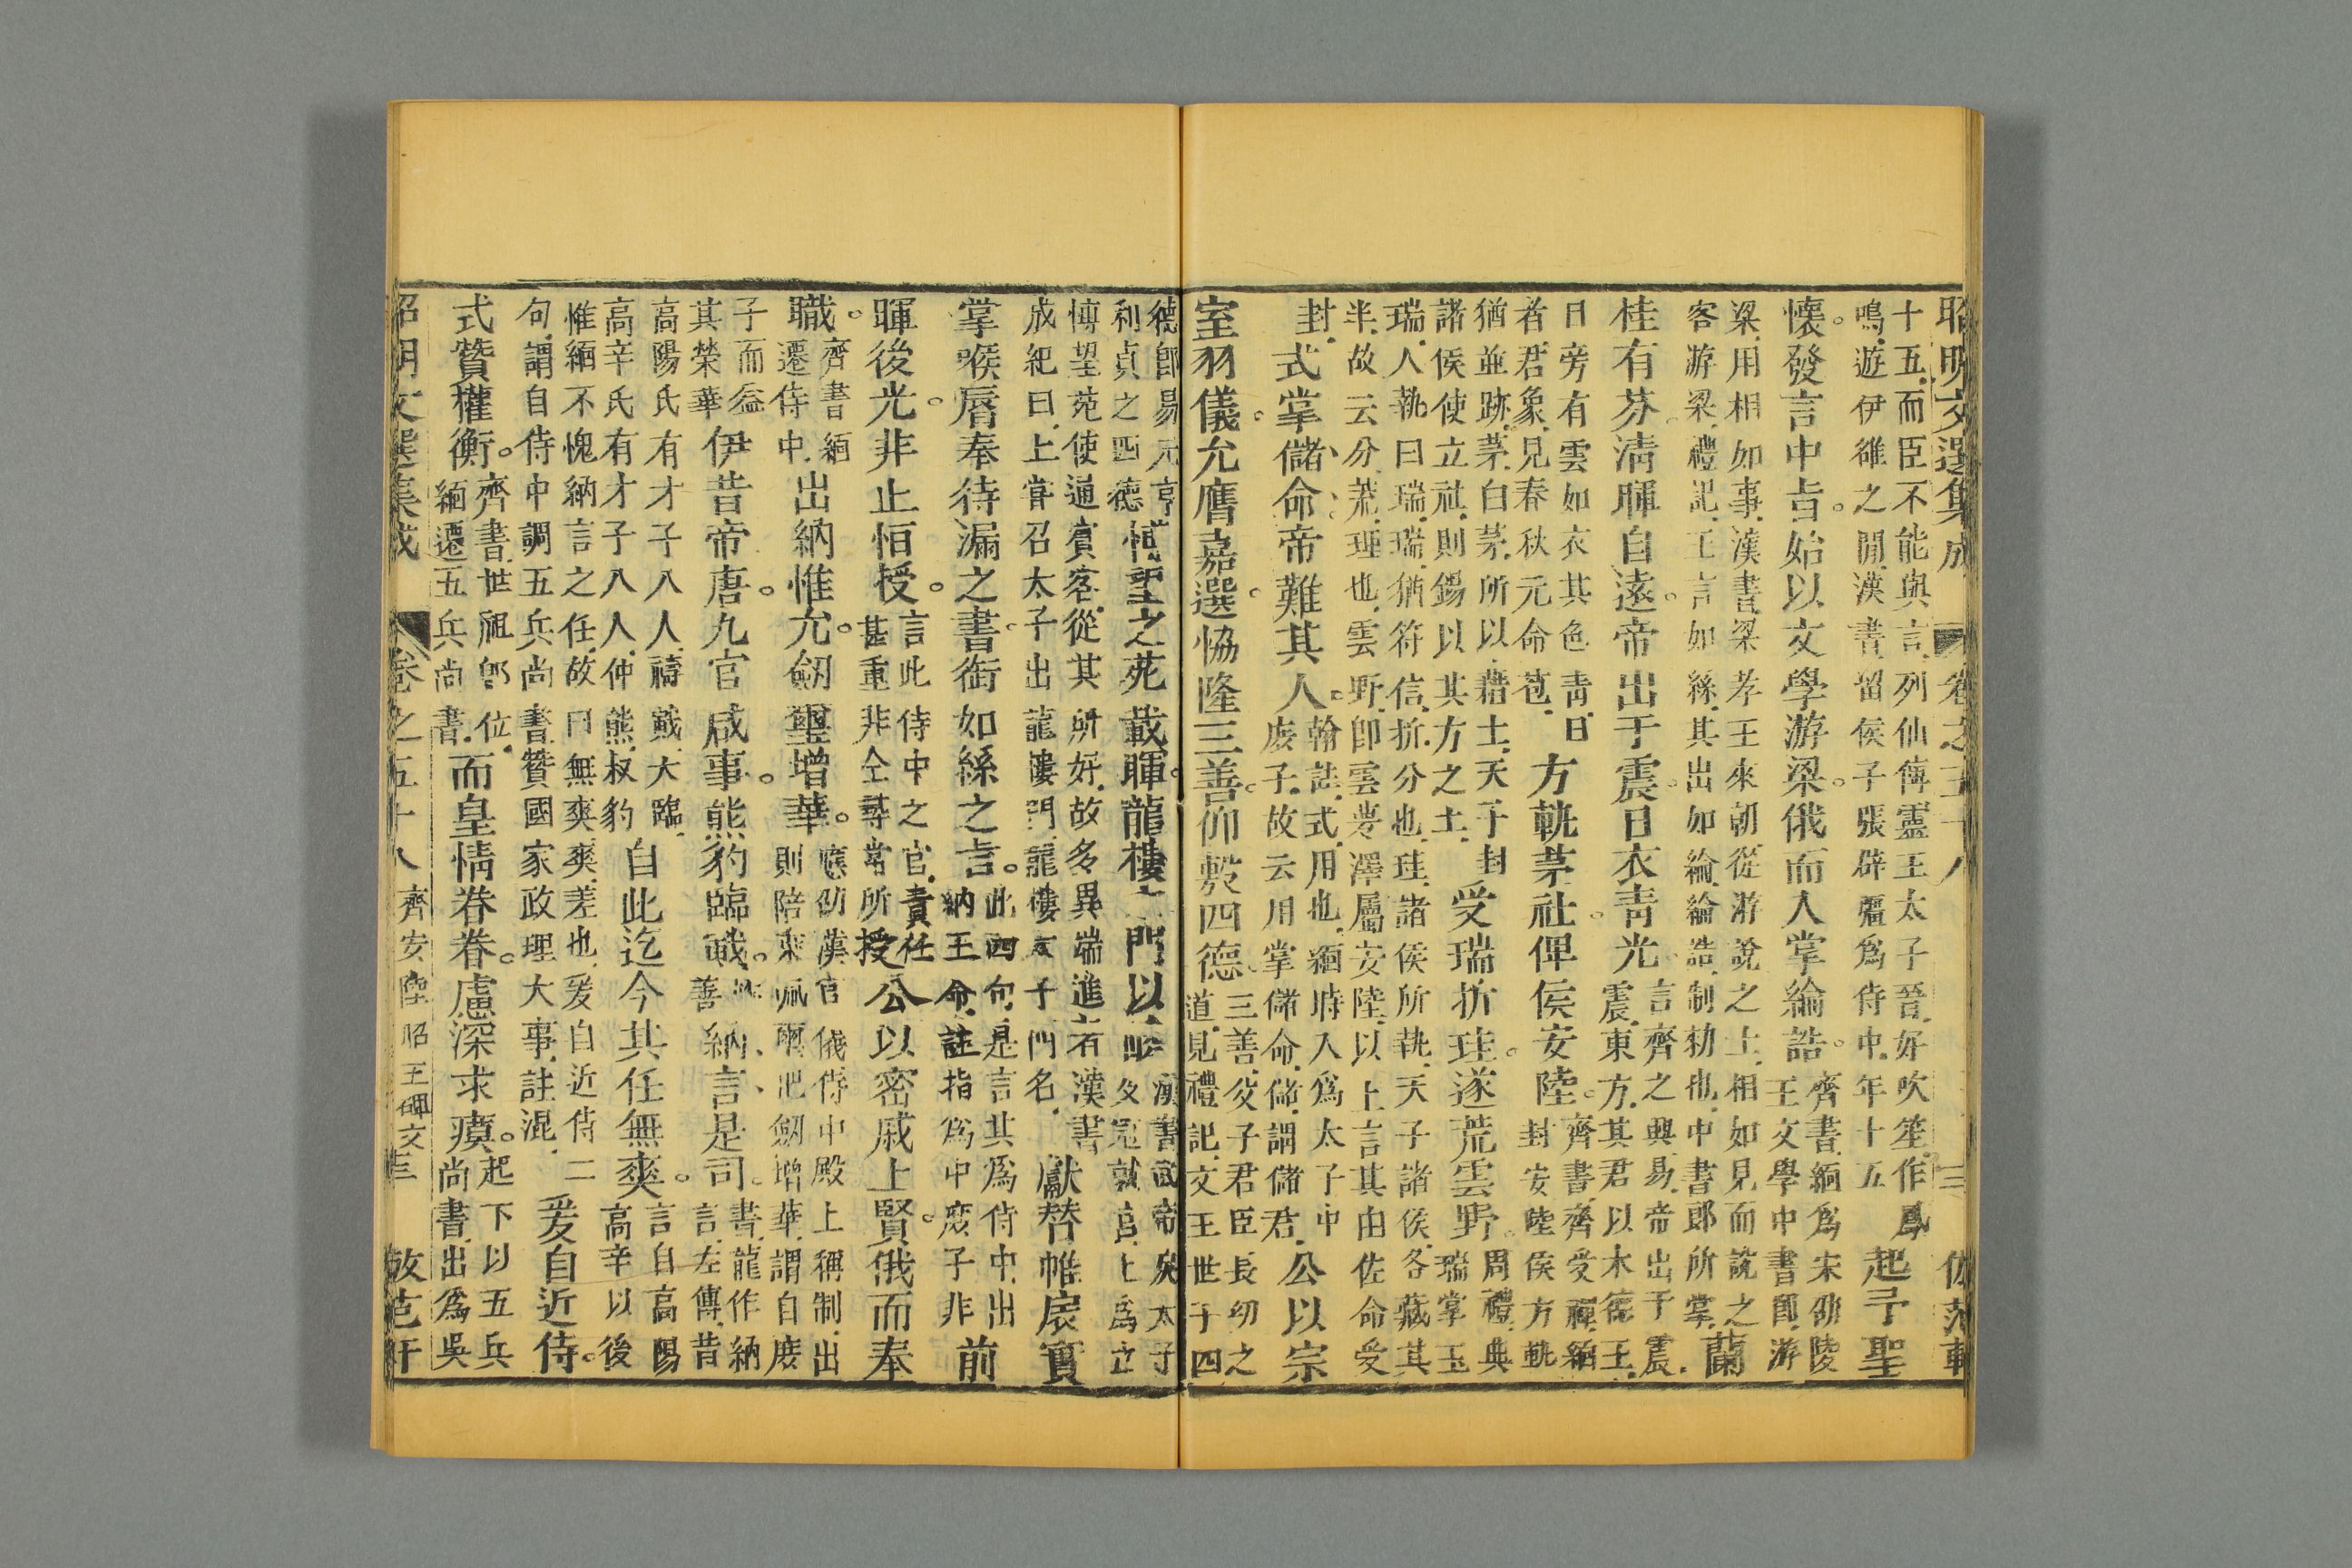 昭明文選集成 卷之五十八 三 倣范軒
十五而臣不能與言列仙傳靈王太子晉好吹笙作鳳
鳴遊伊雒之間漢書留侯子張辟疆爲侍中年十五
起予聖
懷發言中旨始以文學游梁俄而入掌綸誥
齊書緬爲宋邵陵
王文學中書郎游
梁用相如事漢書梁孝王來朝從游說之士相如見而說之
客游梁禮記王言如絲其出如綸綸誥制勅也中書郎所掌
蘭
桂有芬淸暉自遠帝出于震日衣靑光
言齊之興易帝出于震
震東方其君以木德王
日旁有雲如衣其色靑日
者君象見春秋元命苞
方軌茅社俾侯安陸
齊書齊受禪緬
封安陸侯方軌
猶並跡茅白茅所以藉土天子封
諸侯使立社則錫以其方之土
受瑞折珪遂荒雲野
周禮典
瑞掌玉
瑞人執曰瑞瑞猶符信折分也珪諸侯所執天子諸侯各藏其
半故云分荒理也雲野卽雲夢澤屬安陸以上言其由佐命受
封
式掌儲命帝難其人
翰註式用也緬時入爲太子中
庶子故云用掌儲命儲謂儲君
公以宗
室羽儀允膺嘉選恊隆三善仰敷四德
三善父子君臣長幼之
道見禮記文王世子四
德卽易元亨
利貞之四德
博望之苑載暉龍樓之門以峻
漢書武帝戾太子
及冠就宮上爲立
博望苑使通賓客從其所好故多異端進者漢書
成紀曰上嘗召太子出龍樓門龍樓太子門名
獻替帷扆實
掌喉脣奉待漏之書銜如絲之旨
此四句是言其爲侍中出
納王命註指爲中庶子非
前
暉後光非止恒授
言此侍中之官責任
甚重非仝尋常所授
公以密戚上賢俄而奉
職
齊書緬
遷侍中
出納惟允劒璽增華
應劭漢官儀侍中殿上稱制出
則陪乘佩璽把劒增華謂自庶
子而益
其榮華
伊昔帝唐九官咸事熊豹臨戴
善
納言是司
書龍作納
言左傳昔
高陽氏有才子八人禱戴大臨
高辛氏有才子八人仲熊叔豹
自此迄今其任無爽
言自高陽
高辛以後
惟緬不愧納言之任故曰無爽爽差也爰自近侍二
句謂自侍中調五兵尚書贊國家政理大事註混
爰自近侍
式贊權衡
齊書世祖卽位
緬遷五兵尚書
而皇情眷眷慮深求瘼
起下以五兵
尚書出爲吳
昭明文選集成 卷之五十八 齊安陸昭王碑文 三 倣范軒